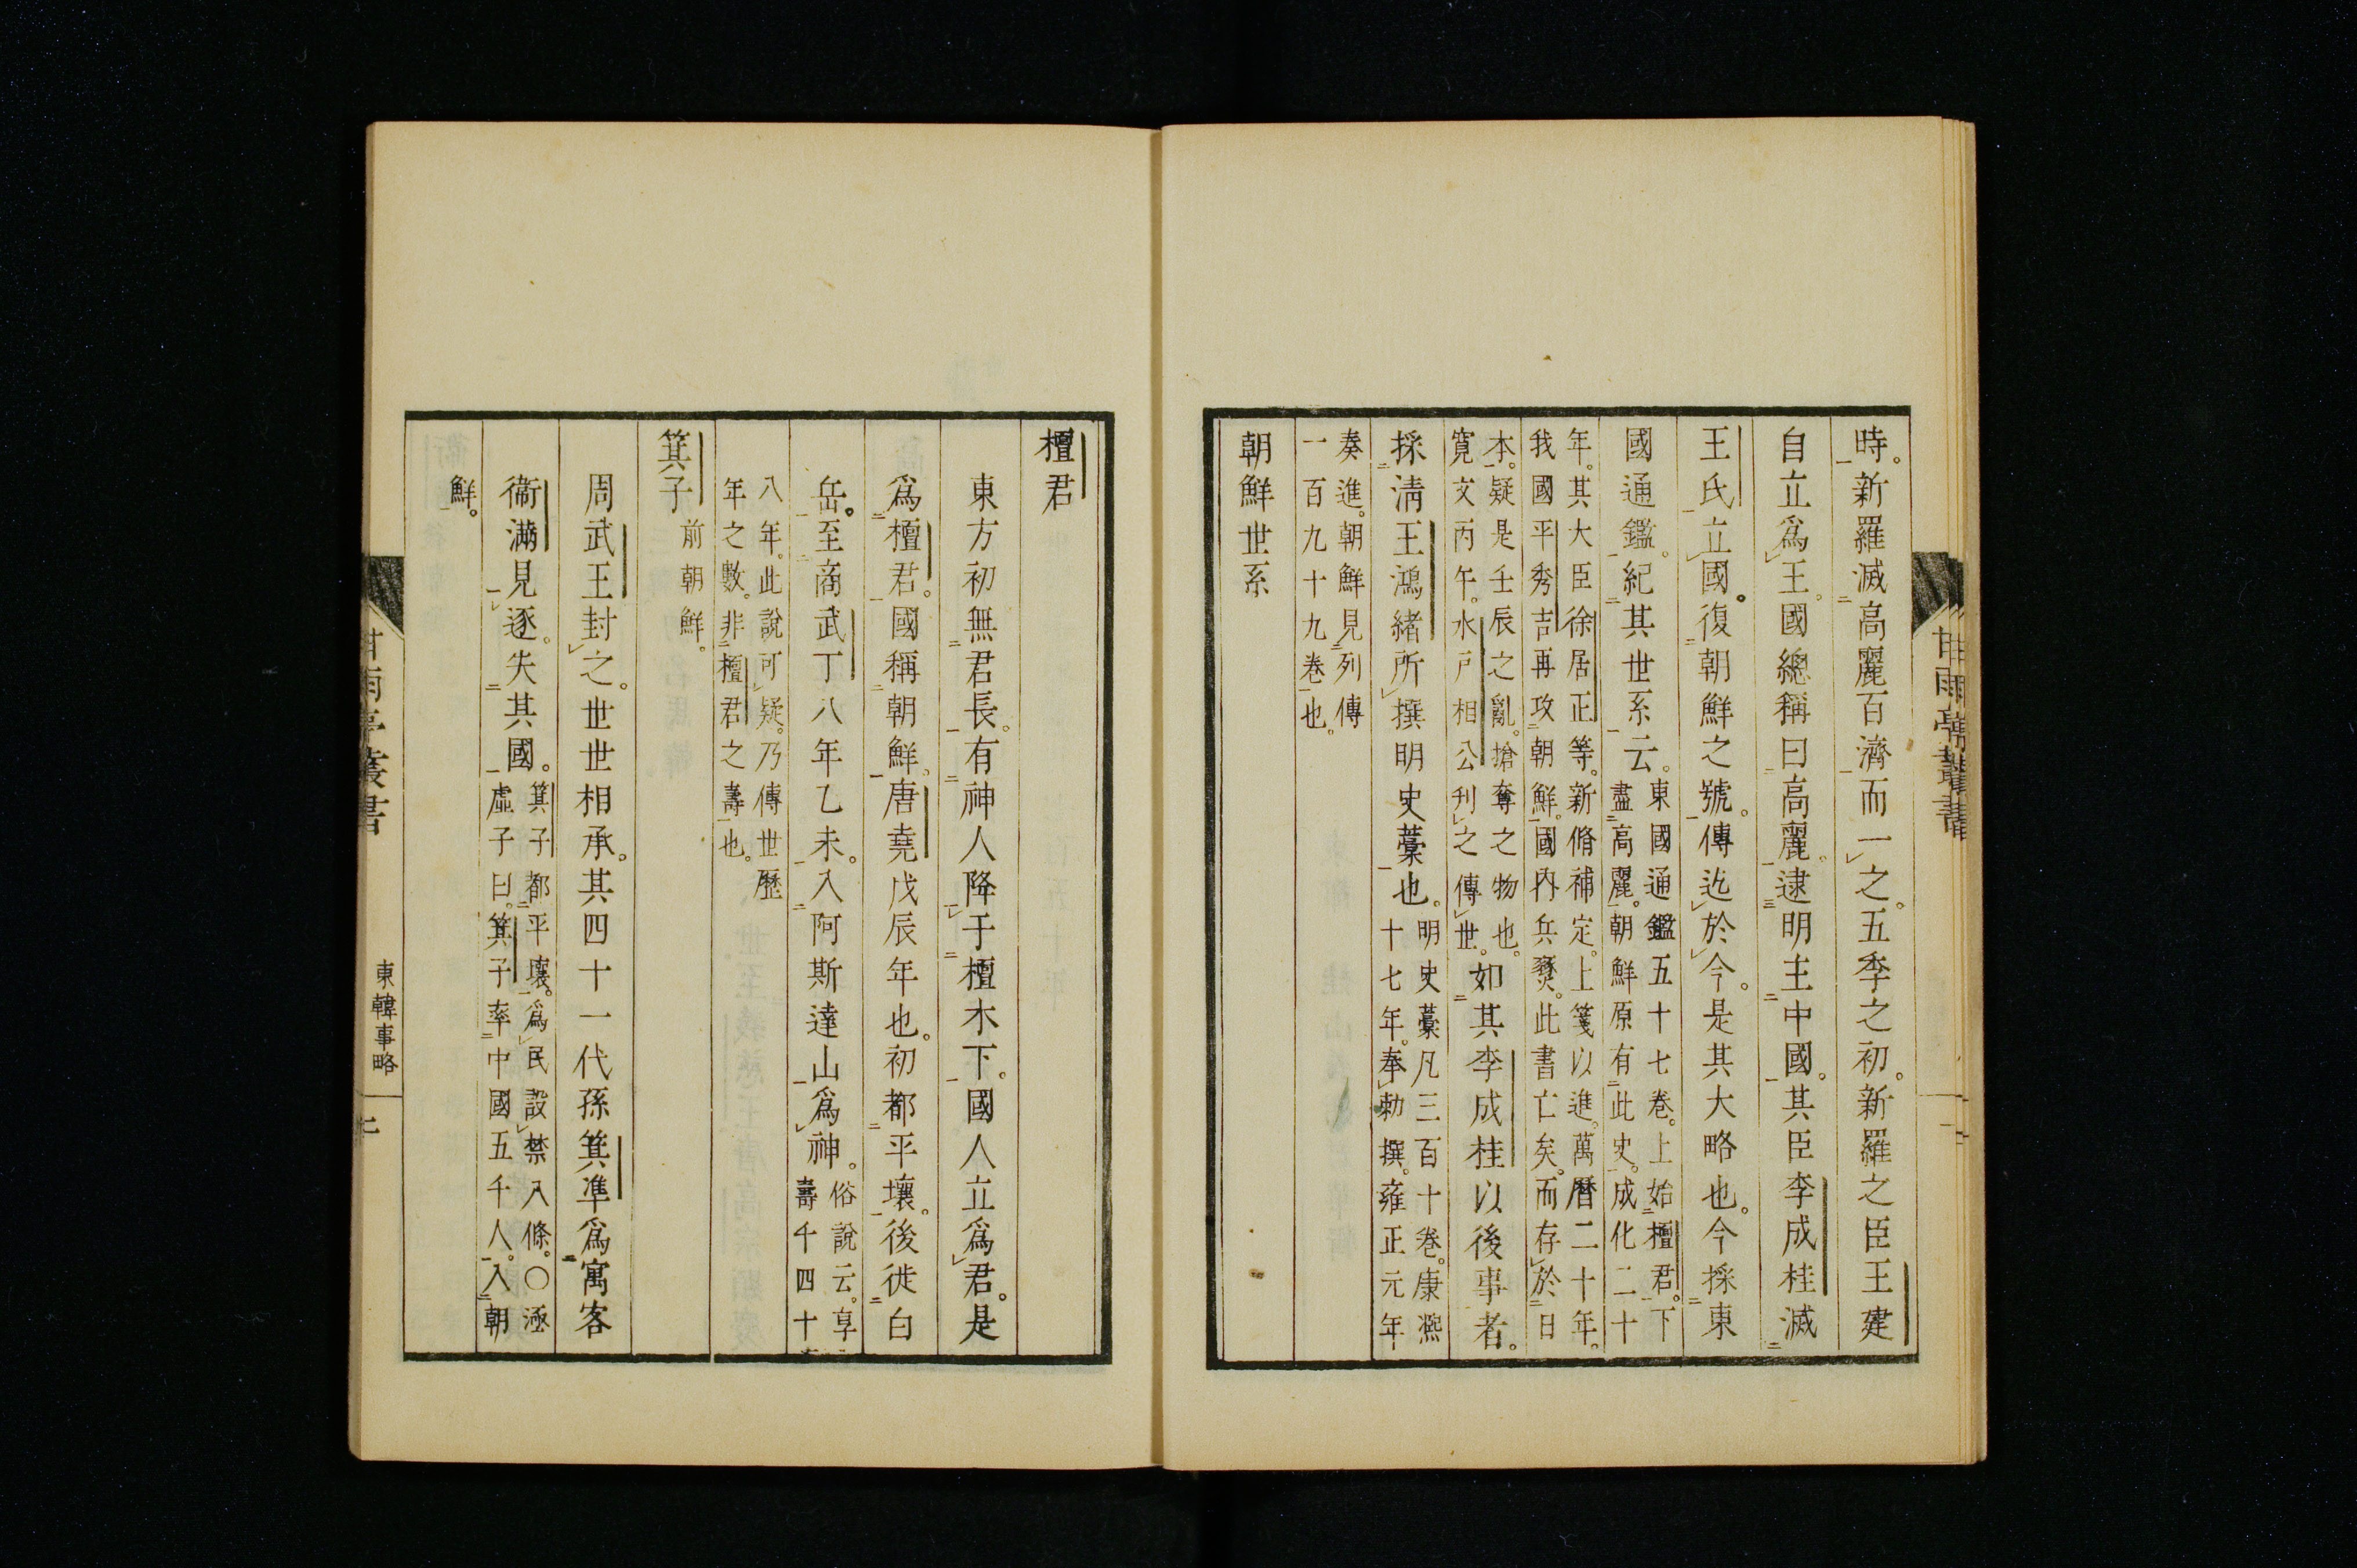 時。新羅滅高麗百濟而一之。五季之初。新羅之臣王建
自立爲王。國總稱曰高麗。逮明主中國。其臣李成桂滅
王氏立國。復朝鮮之號。傳迄於今。是其大略也。今採東
國通鑑。紀其世系云。
東國通鑑五十七卷。上始檀君。下
盡高麗。朝鮮原有此史。成化二十
年。其大臣徐居正等。新脩補定。上箋以進。萬曆二十年。
我國平秀吉再攻朝鮮。國內兵燹。此書亡矣。而存於日
本。疑是壬辰之亂。搶奪之物也。
寛文丙午。水戸相公刊之傳世。
如其李成桂以後事者。
採淸王鴻緒所撰明史藁也。
明史藁凡三百十卷。康熙
十七年。奉勅撰。雍正元年
奏進。朝鮮見列傳
一百九十九卷也。
朝鮮世系
甘雨亭叢書
檀君
東方初無君長。有神人降于檀木下。國人立爲君。是
爲檀君。國稱朝鮮。唐堯戊辰年也。初都平壤。後徙白
岳。至商武丁八年乙未。入阿斯達山爲神。
俗說云。享
壽千四十
八年。此說可疑。乃傳世歷
年之數。非檀君之壽也。
箕子
前朝鮮。
周武王封之。世世相承。其四十一代孫箕準爲寓客
衞滿見逐。失其國。
箕子都平壤。爲民設禁入條。〇涵
虛子曰。箕子率中國五千人。入朝
鮮。
甘雨亭叢書
東韓事略